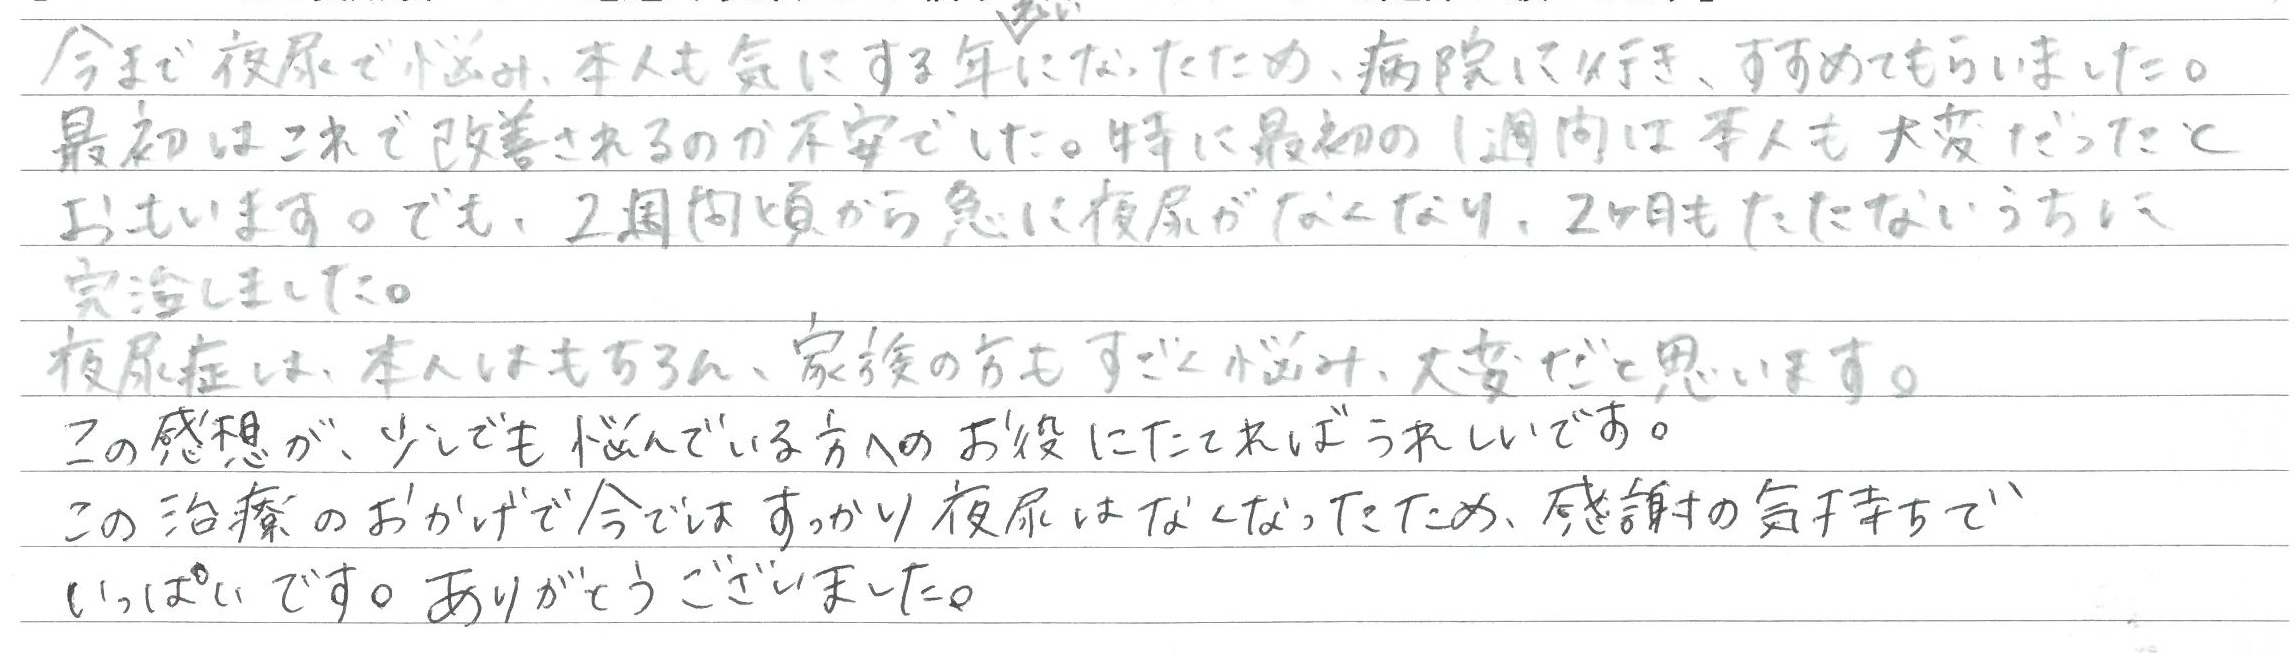 今まで夜尿で悩み、本人も気にする年になったため、病院に行き、すすめてもらいました。
最初はこれで改善されるのか不安でした。特に最初の1週間は本人も大変だったと
おもいます。でも、2週間頃から急に夜尿がなくなり、2ヶ月もたたないうちに
完治しました。
夜尿症は、本人はもちろん、家族の方もすごく悩み、大変だと思います。
この感想が、少しでも悩んでいる方へのお役にたてればうれしいです。
この治療のおかげで今ではすっかり夜尿はなくなったため、感謝の気持ちで
いっぱいです。ありがとうございました。